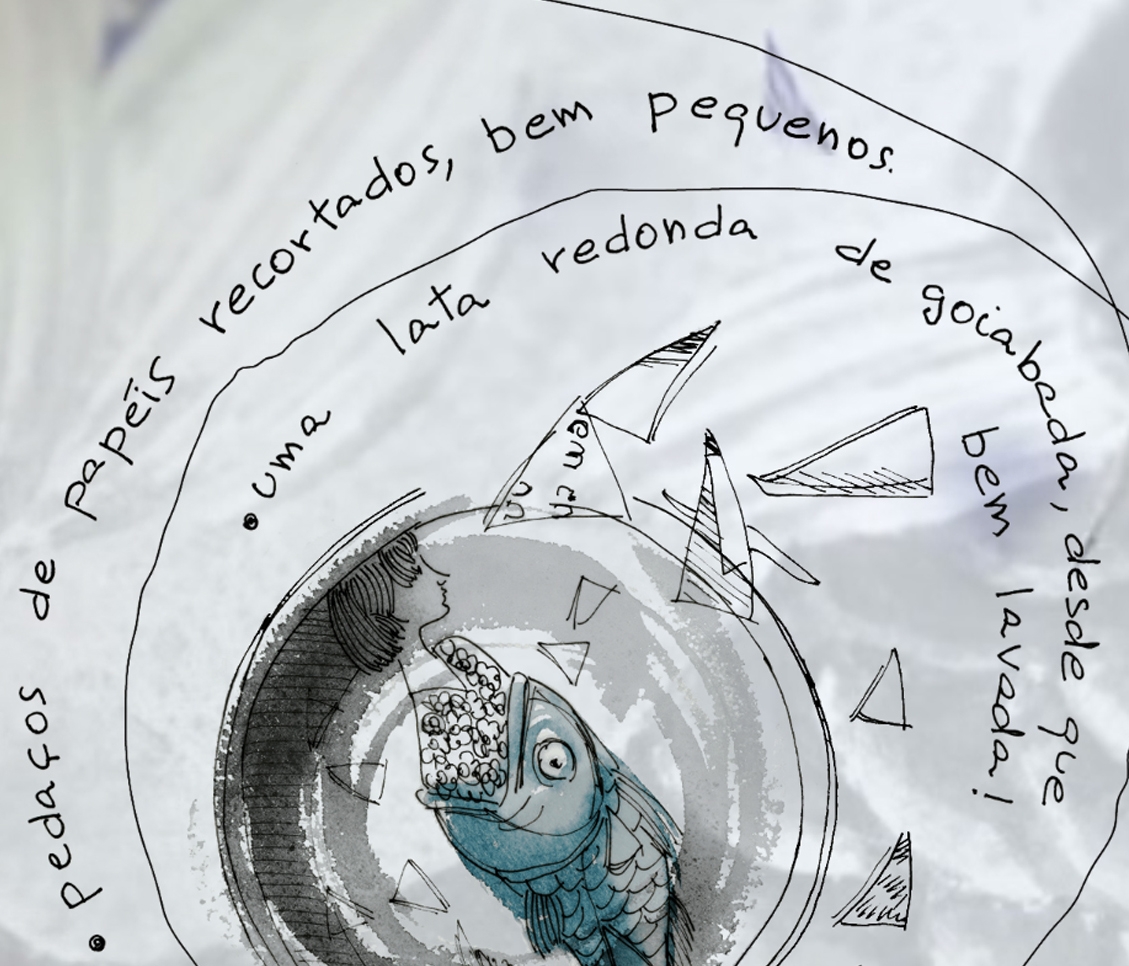 • pedaços de papéis recortados, bem pequenos.
• uma lata redonda de goiabada, desde que
bem lavada!